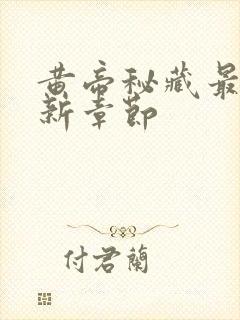 黄帝秘藏最
新章节
付君兰